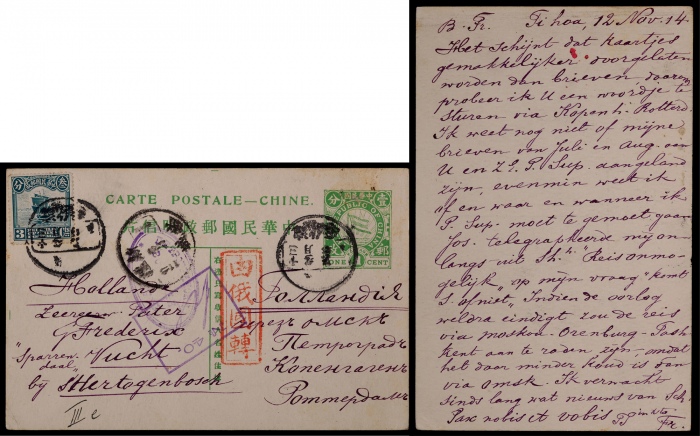 CARTE POSTALE—CHINE.
中華民國郵政
ONE 1 CENT
由俄國轉
Holland
Zeereerw. Pater
G. Frederix
"Sparrendaal" Vucht
by 's Hertogenbosch
III e
Голландія
черезъ Омскъ
Петроградъ
Копенгагенъ
Роттердамъ
B. Fr. Ti hoa, 12 Nov. 14
Het schijnt dat kaartjes
gemakkelijker doorgelaten
worden dan brieven, daarom
probeer ik U een woordje te
sturen via Kopenh. Rotterd.
Ik weet nog niet of mijne
brieven van Juli en Aug. aan
U en Z.E. P. Sup. aangeland
zijn, evenmin weet ik
of en waar en wanneer ik
P. Sup. moet te gemoet gaan
Jos. telegrapheerd mij on
langs uit "Reis onmo-
gelijk" op mijn vraag "komt
S. of niet". Indien de oorlog
weldra eindigt zou de reis
via Moskou-Orenburg-Tash
kent aan te raden zijn, omdat
het daar minder koud is dan
via Omsk. Ik verwacht
sinds lang wat nieuws van Sch.
Pax nobis et vobis Fr.